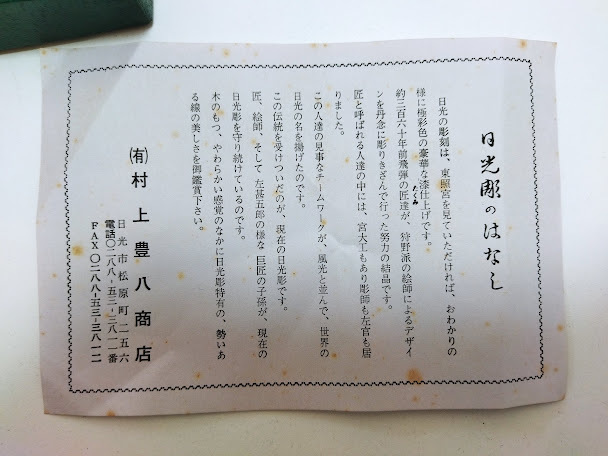 日光彫のはなし
日光の彫刻は、東照宮を見ていただければ、おわかりの
様に極彩色の豪華な漆仕上げです。
約三百六十年前飛弾の匠達が、狩野派の絵師によるデザイ
たくみ
ンを丹念に彫りきざんで行った努力の結晶です。
匠と呼ばれる人達の中には、宮大工もあり彫師も左官も居
りました。
この人達の見事なチームワークが、風光と並んで、世界の
日光の名を揚げたのです。
この伝統を受けついだのが、現在の日光彫です。
匠、絵師、そして左甚五郎の様な巨匠の子孫が、現在の
日光彫を守り続けているのです。
木のもつ、やわらかい感覚のなかに日光彫特有の、勢いあ
る線の美しさを御鑑賞下さい。
㈲村上豊八商店
日光市松原町二五六
電話〇二八八-五三-三八一一番
FAX〇二八八-五三-三八一二